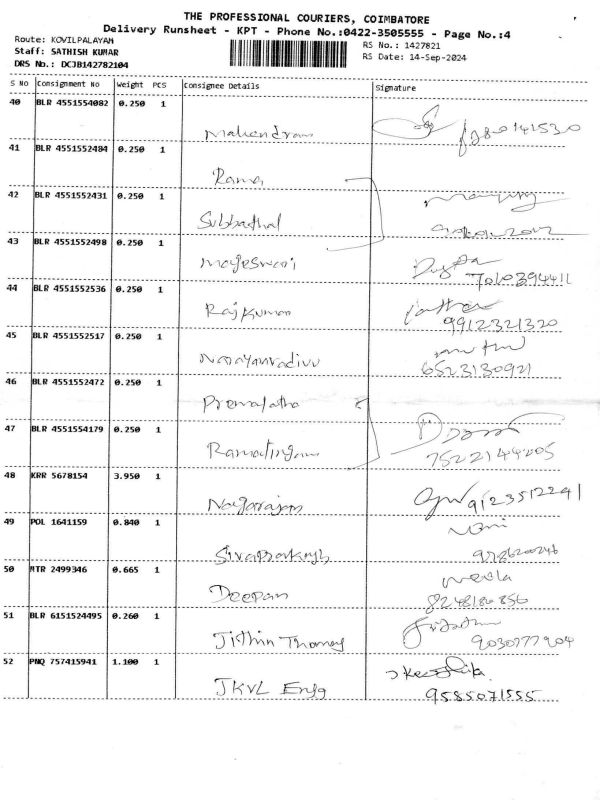 THE PROFESSIONAL COURIERS, COIMBATORE
Delivery Runsheet - KPT - Phone No.:0422-3505555 - Page No.:4
Route: KOVILPALAYAM
RS No.: 1427821
Staff: SATHISH KUMAR
RS Date: 14-Sep-2024
DRS No.: DCJB142782104
S No Consignment No Weight PCS Consignee Details Signature
40 BLR 4551554082 0.250 1
Mahendran
41 BLR 4551552484 0.250 1
Rama
42 BLR 4551552431 0.250 1
Subbathal
43 BLR 4551552498 0.250 1
Mageswari
7010394411
44 BLR 4551552536 0.250 1
RajKumar
9912321320
45 BLR 4551552517 0.250 1
Narayanvadivu
6523130921
46 BLR 4551552472 0.250 1
Premalatha
47 BLR 4551554179 0.250 1
Ramalingam
7522144205
48 KRR 5678154 3.950 1
Nagarajan 9123512291
49 POL 1641159 0.840 1
Mani
Sivaprakash
50 MTR 2499346 0.665 1
Deepan
8248186856
51 BLR 6151524495 0.260 1
Jithin Thomas
9030777904
52 PNQ 757415941 1.100 1
JKVL Engg
9585071555